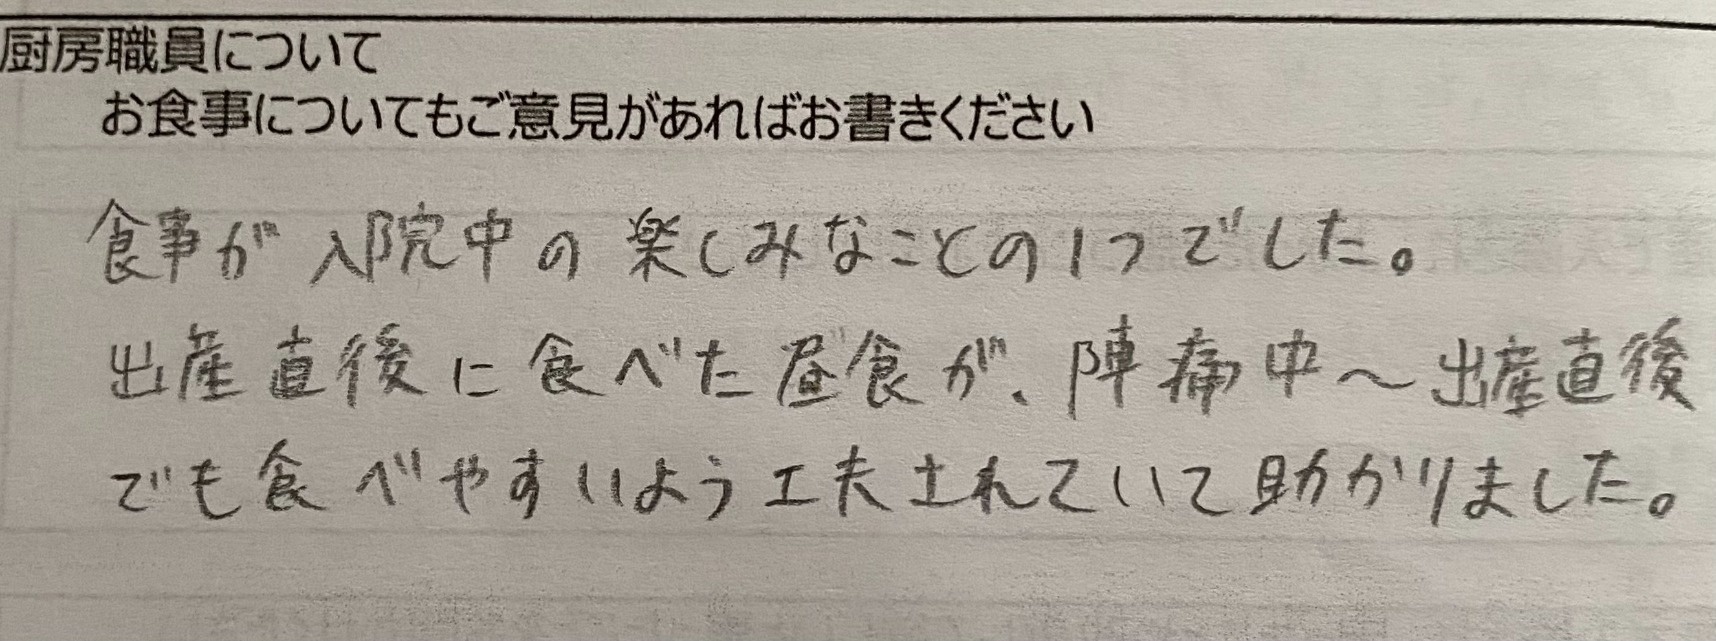 厨房職員について
お食事についてもご意見があればお書きください
食事が入院中の楽しみなことの1つでした。
出産直後に食べた昼食が、陣痛中～出産直後
でも食べやすいよう工夫されていて助かりました。